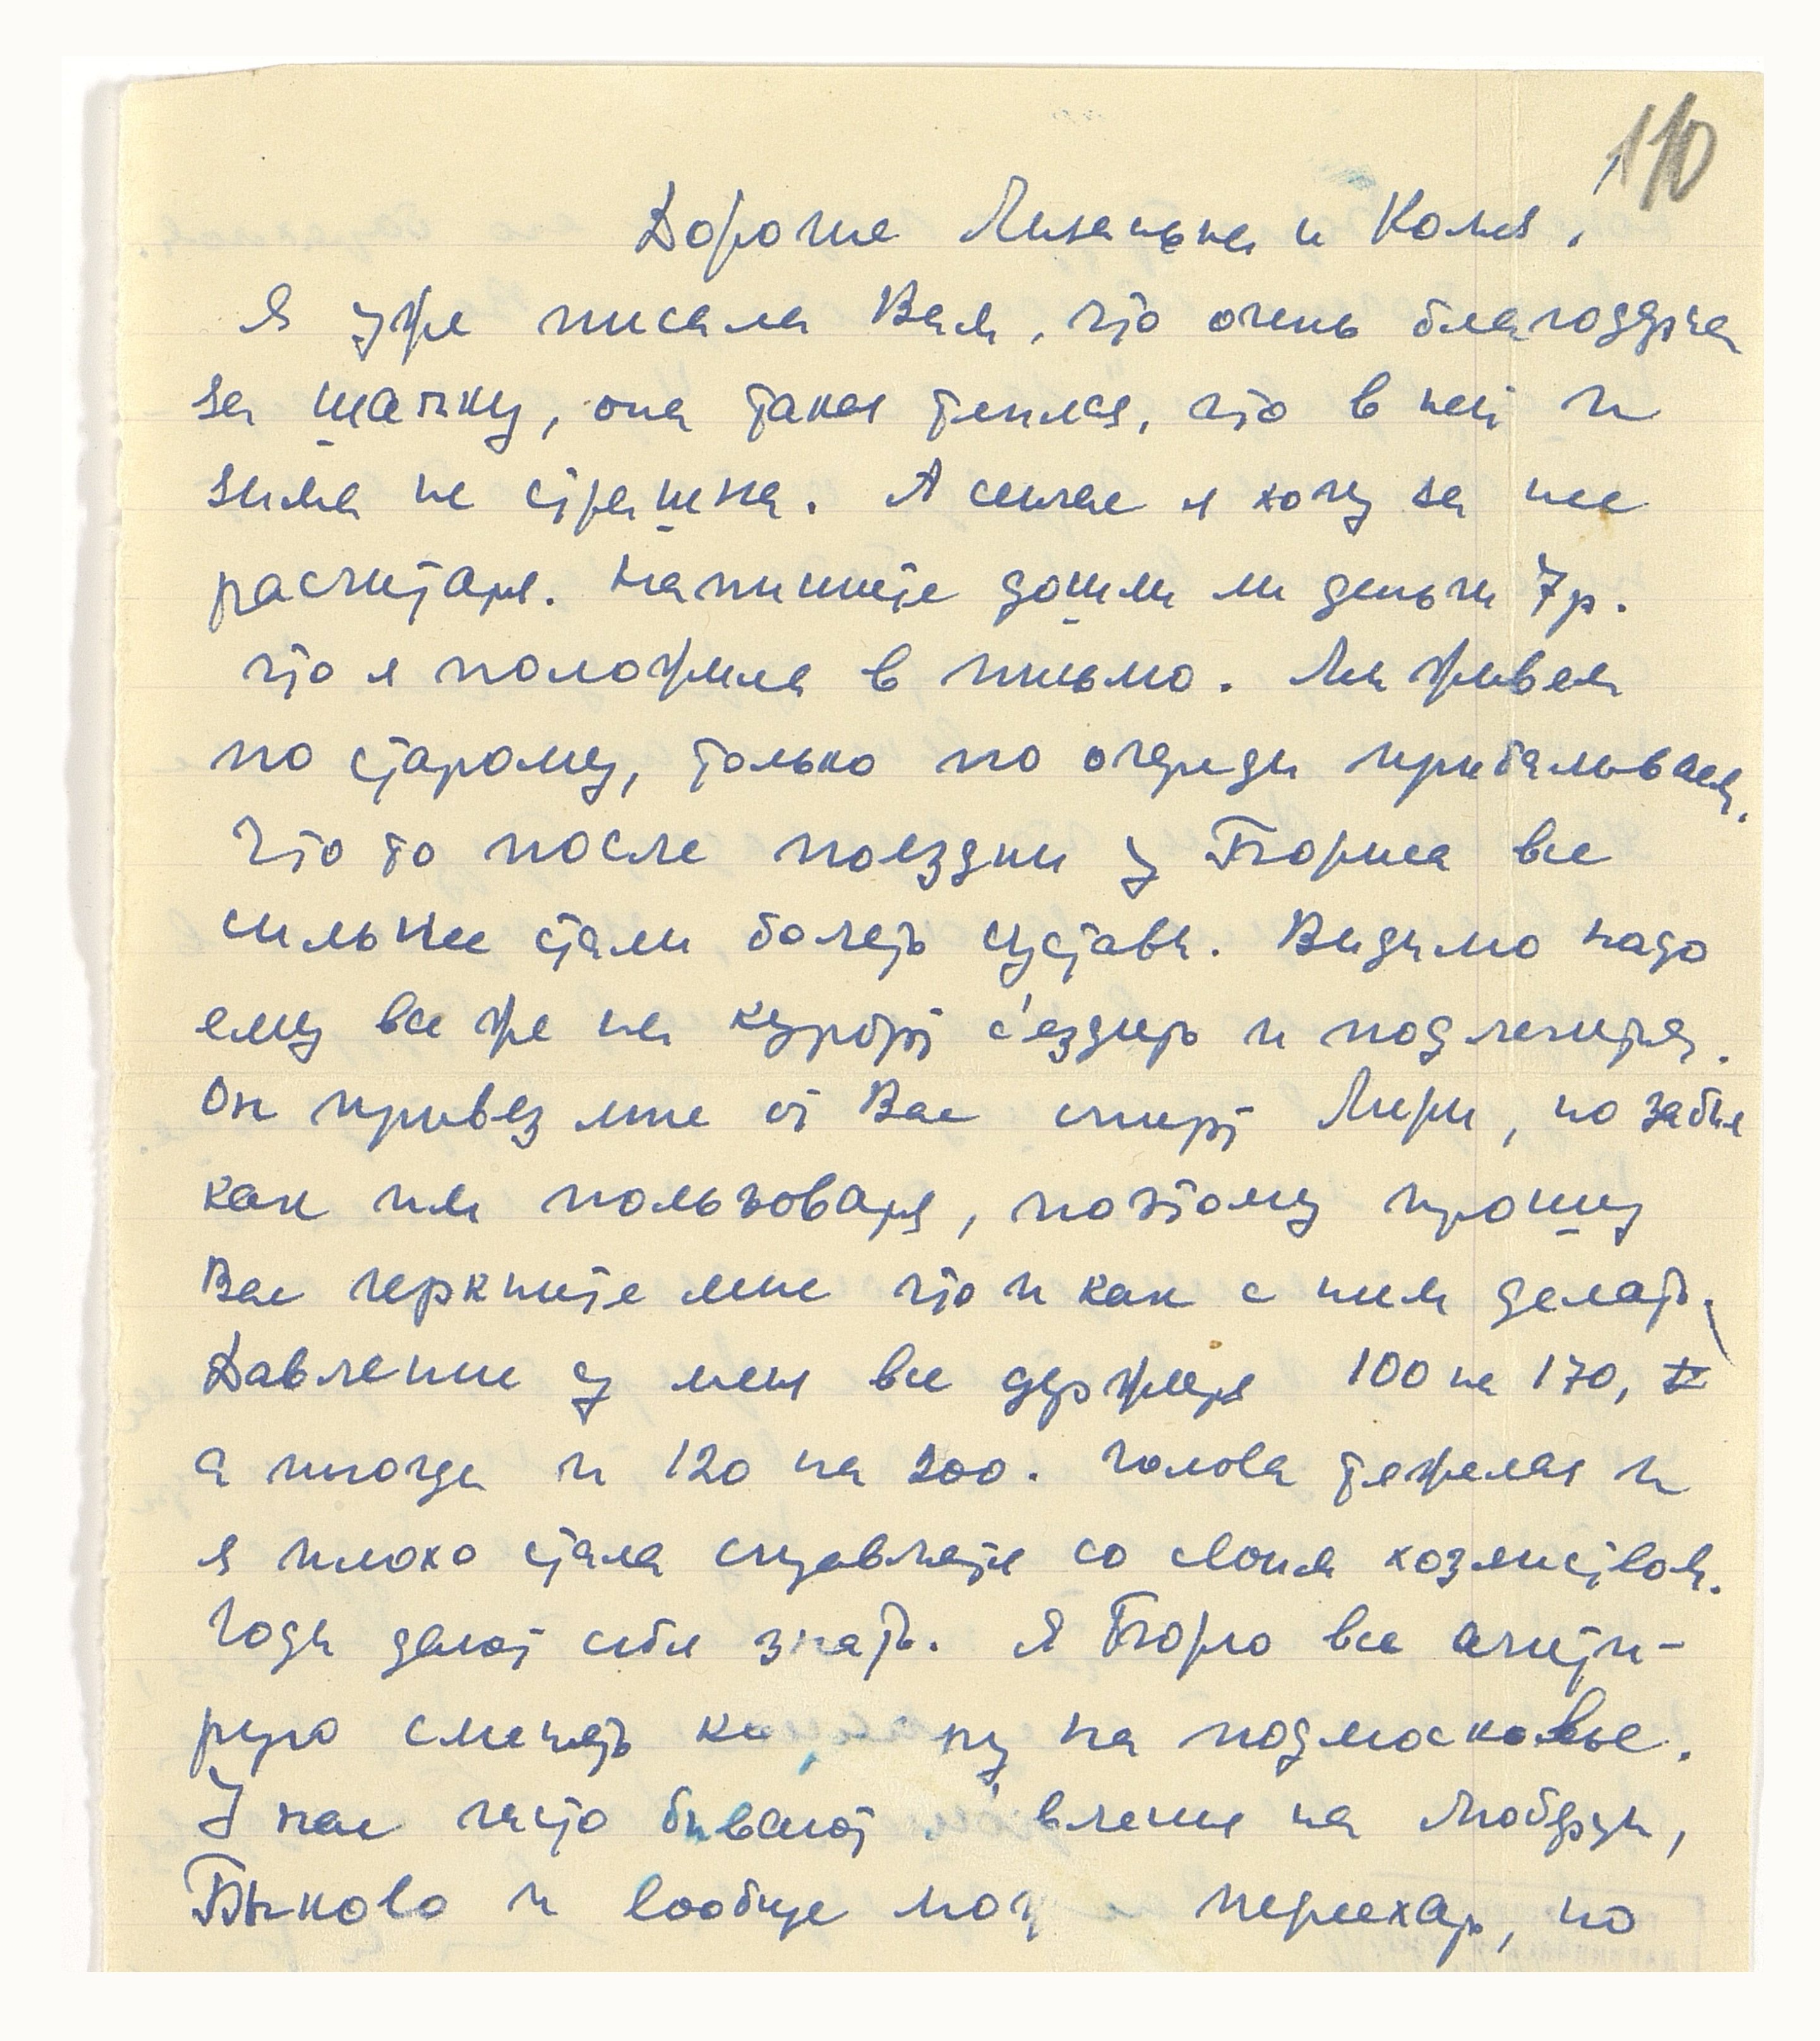 110
Дорогие Лизанька и Коля!
Я уже писала Вам, что очень благодарна
за шапку, она такая теплая, что в ней и
зима не страшна. А сейчас я хочу за нее
расчитаться. Напишите дошли ли деньги 7р.
что я положила в письмо. Мы живем
по старому, только по очереди прибаливаем.
Что то после поездки у Бориса все
сильнее стали болеть суставы. Видимо надо
ему все же на курорт с'ездить и подлечиться.
Он привез мне от Вас спирт Мери, но забыл
как им пользоваться, поэтому прошу
Вас черкните мне что и как с ним делать.
Давление у меня все держится 100 на 170,
а иногда и 120 на 200. Голова тяжелая и
я плохо стала справляться со своим хозяйством.
Годы дают себя знать. Я Борю все агити-
рую сменять ко ту на подмосковье.
У нас часто бывают вления на Люберцы,
Быково и вообще мог переехать, но